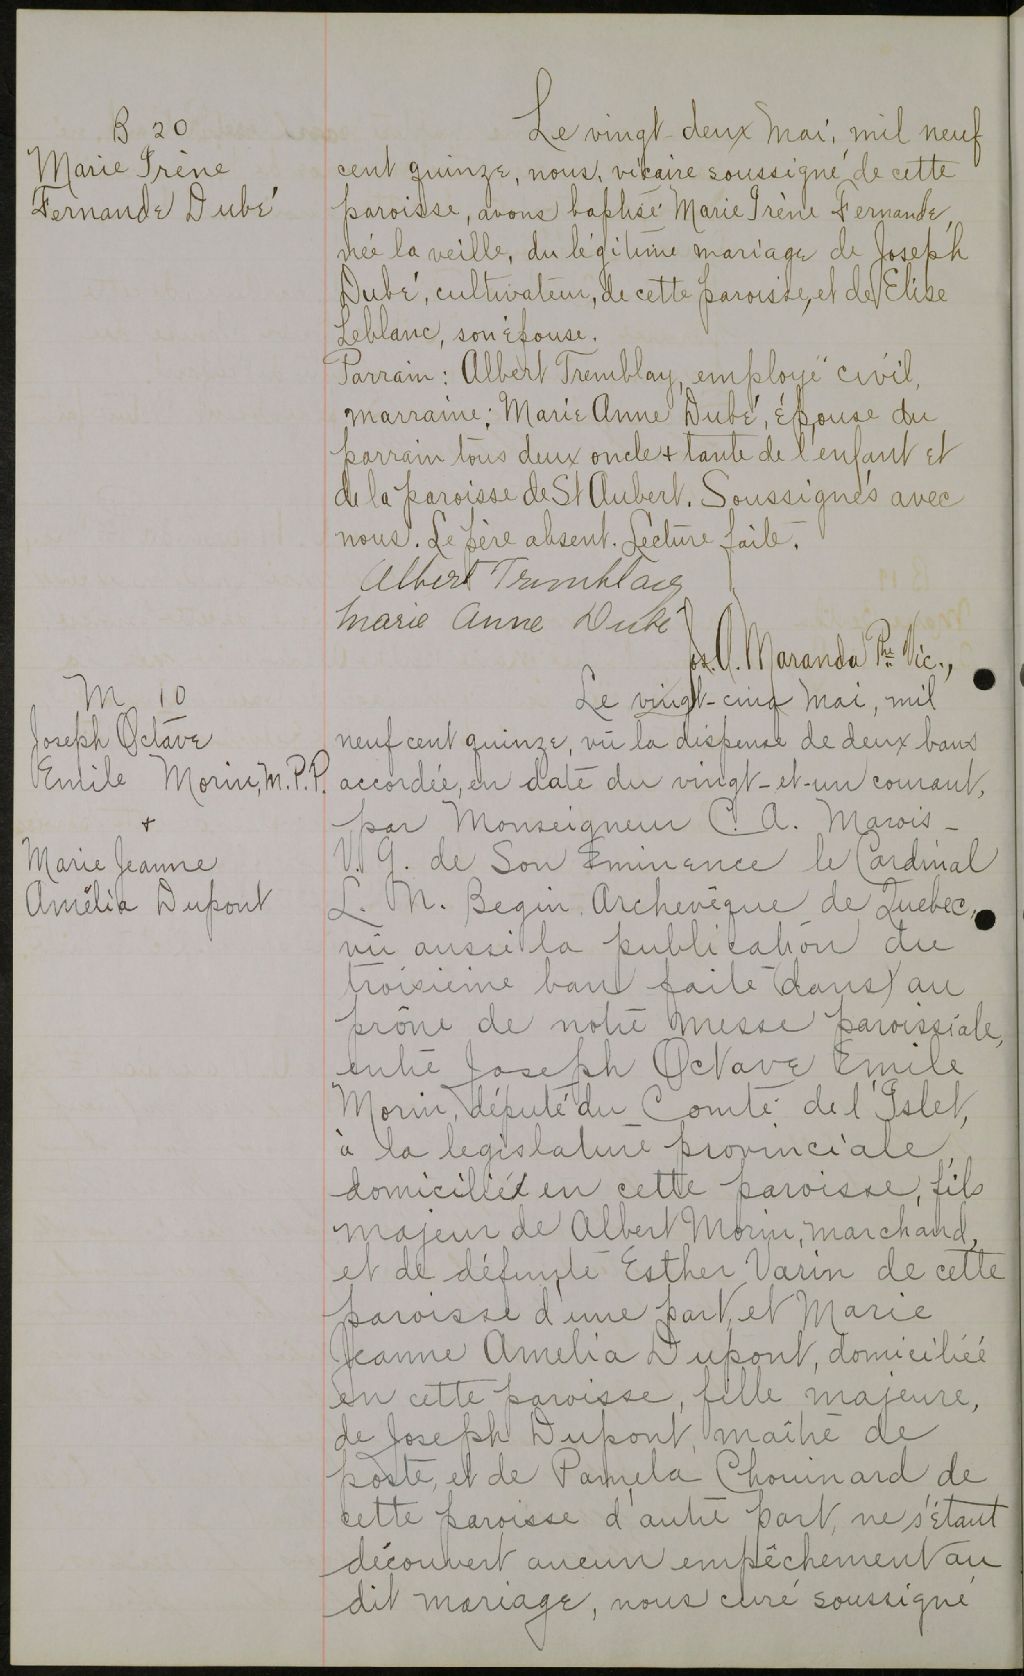 B 20
Marie Irène
Fernande Dubé
Le vingt-deux Mai, mil neuf
cent quinze, nous, vicaire soussigné de cette
paroisse, avons baptisé Marie Irène Fernande,
née la veille, du légitime mariage de Joseph
Dubé, cultivateur, de cette paroisse, et de Elise
Leblanc, son épouse.
Parrain: Albert Tremblay, employé civil,
marraine: Marie Anne Dubé, épouse du
parrain tous deux oncle + tante de l'enfant et
de la paroisse de St Aubert. Soussignés avec
nous. Le père absent. Lecture faite.
Albert Tremblay
Marie Anne Dubé
Jos. A. Maranda Ptre Vic.,
M 10
Joseph Octave
Emile Morin, M.P.P.
+
Marie Jeanne
Amélia Dupont
Le vingt-cinq Mai, mil
neuf cent quinze, vu la dispense de deux bans
accordée, en date du vingt-et-un courant,
par Monseigneur C. A. Marois -
V. G. de Son Eminence le Cardinal
L. N. Begin, Archevêque de Québec,
vu aussi la publication du
troisième ban faite (dans) au
prône de notre messe paroissiale,
entre Joseph Octave Emile
Morin, député du Comté de l'Islet,
à la legislature provinciale,
domicilié en cette paroisse, fils
majeur de Albert Morin, marchand,
et de défunte Esther Varin de cette
paroisse d'une part, et Marie
Jeanne Amelia Dupont, domiciliée
en cette paroisse, fille majeure,
de Joseph Dupont, maître de
poste, et de Pamela Chouinard de
cette paroisse d'autre part, ne s'étant
découvert aucun empêchement au
dit mariage, nous curé soussigné